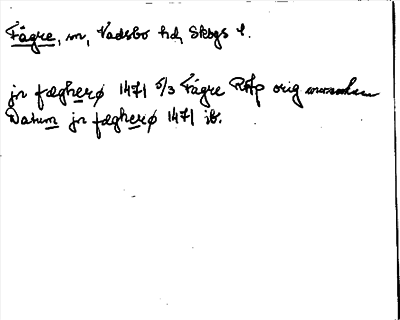 Fägre, sn, Vadsbo hd, Skbgs l.
jn fægherø 1471 5/3 Fägre RAp orig
Datum jn fægherø 1471 ib.